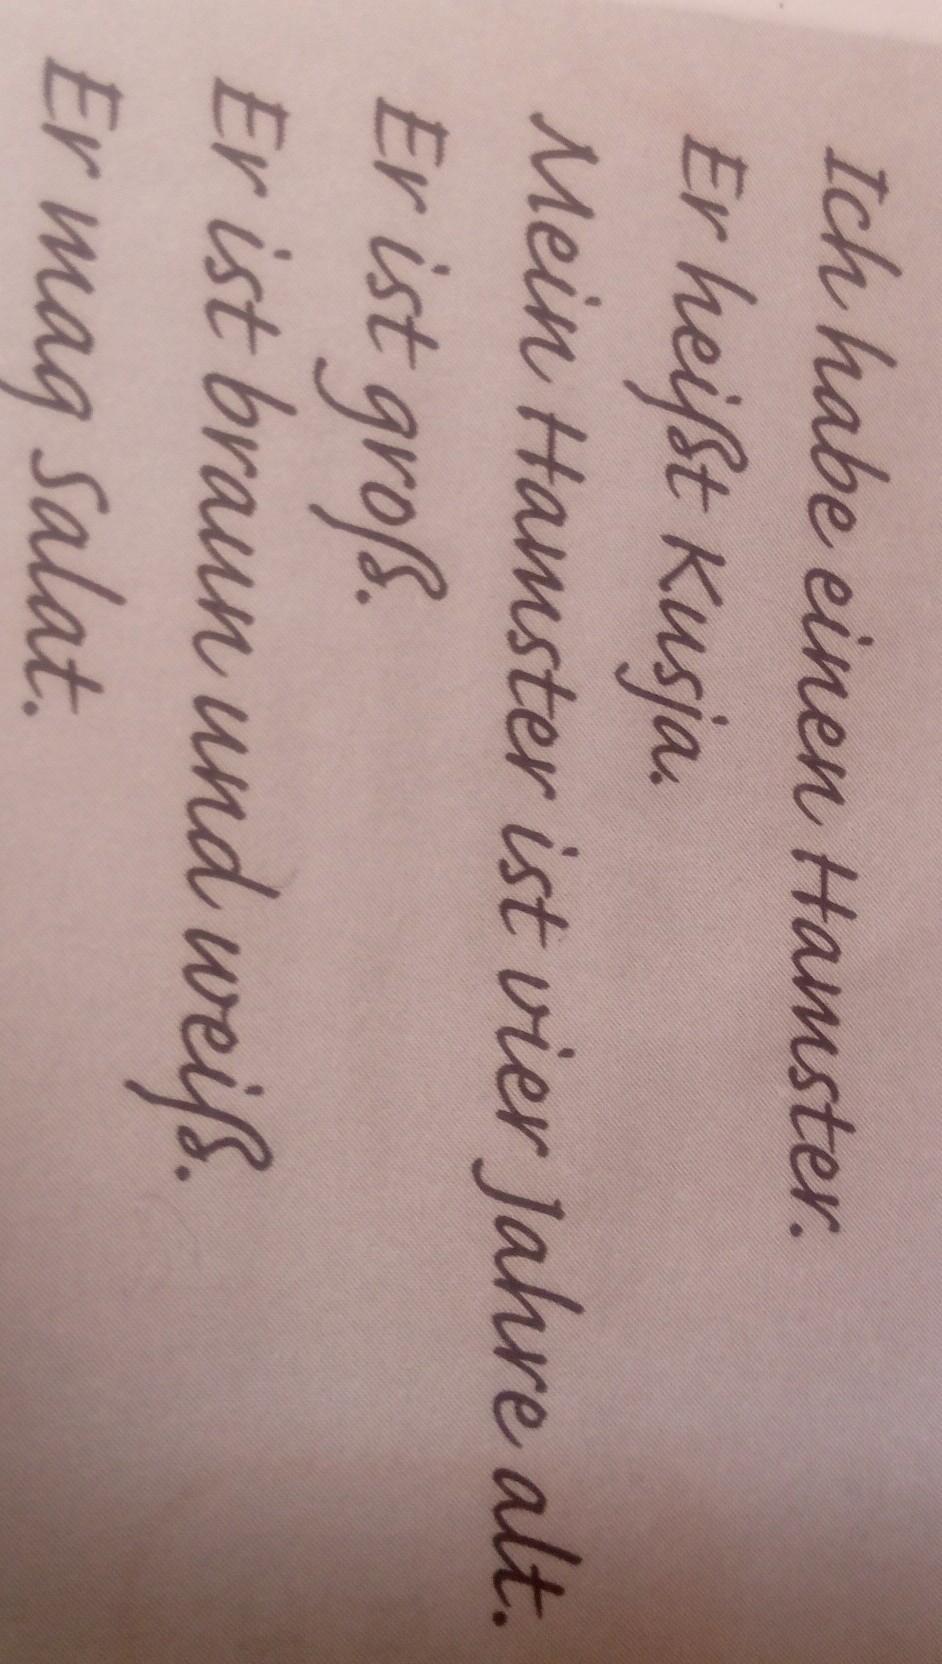 Ich habe einen Hamster.
Er heißt Kusja.
Mein Hamster ist vier Jahre alt.
Er ist groß.
Er ist braun und weiß.
Er mag Salat.